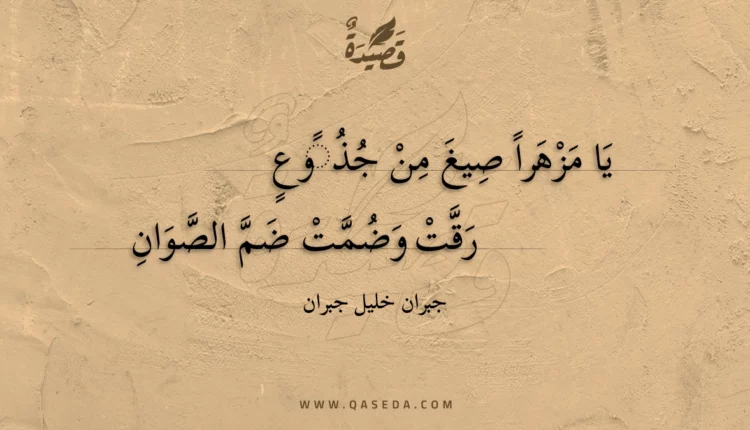 قَصِيْدَةٌ
يَا مَزْهَراً صِيغَ مِنْ جُذُ ًوعٍ
رَقَّتْ وَضُمَّتْ ضَمَّ الصَّوَانِ
جبران خليل جبران
WWW.QASEDA.COM